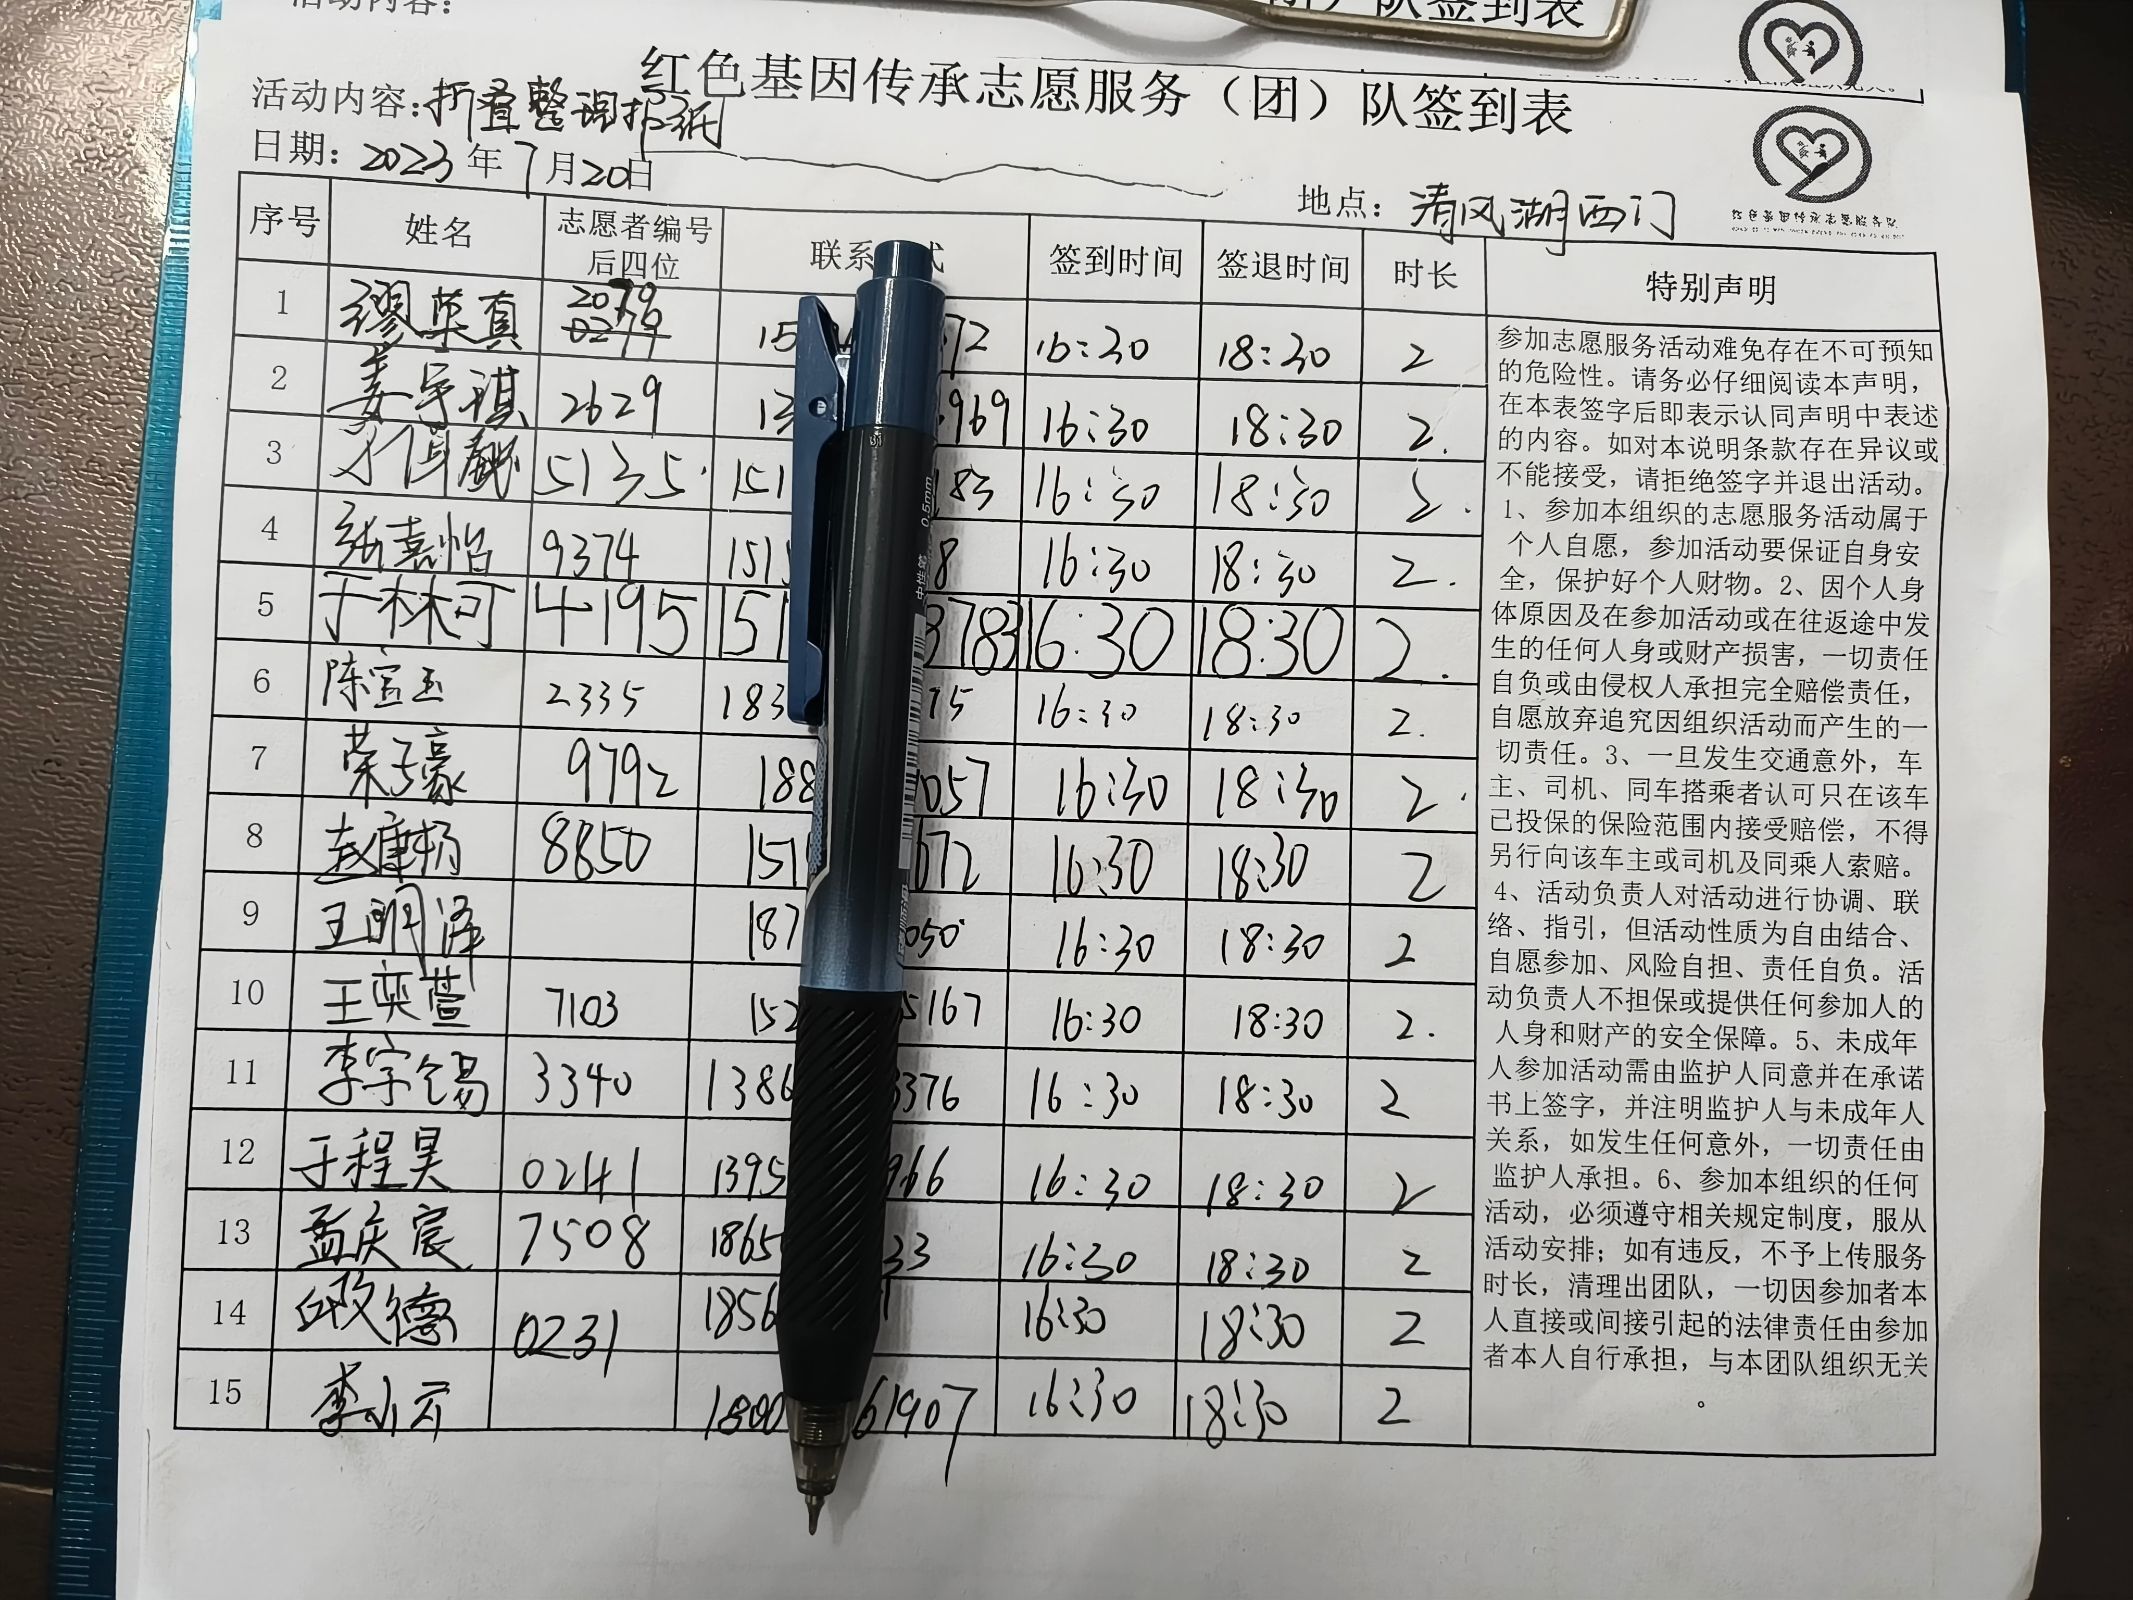 活动内容:
队签到表
红色基因传承志愿服务（团）队签到表
活动内容:折叠整理报纸
日期: 2023年7月20日
地点: 清风湖西门
红色基因传承志愿服务队
序号 姓名 志愿者编号后四位 联系 式 签到时间 签退时间 时长 特别声明
1 缪英真 2079 15 72 16:30 18:30 2
2 姜宇琪 2629 13 969 16:30 18:30 2.
3 5135. 151 183 16:30 18:30 2.
4 张嘉怡 9374 151 8 16:30 18:30 2.
5 于林可 4195 151 3783 16:30 18:30 2.
6 陈宣玉 2335 183 75 16:30 18:30 2.
7 荣子豪 9792 188 057 16:30 18:30 2.
8 赵康杨 8850 151 672 16:30 18:30 2
9 王明泽 187 050 16:30 18:30 2
10 王奕萱 7103 152 5167 16:30 18:30 2.
11 李宇锡 3340 1386 3376 16:30 18:30 2
12 于程昊 0241 1395 966 16:30 18:30 2
13 孟庆宸 7508 1865 33 16:30 18:30 2
14 0231 1856 1 16:30 18:30 2
15 李小云 1800 61907 16:30 18:30 2
参加志愿服务活动难免存在不可预知
的危险性。请务必仔细阅读本声明，
在本表签字后即表示认同声明中表述
的内容。如对本说明条款存在异议或
不能接受，请拒绝签字并退出活动。
1、参加本组织的志愿服务活动属于
个人自愿，参加活动要保证自身安
全，保护好个人财物。2、因个人身
体原因及在参加活动或在往返途中发
生的任何人身或财产损害，一切责任
自负或由侵权人承担完全赔偿责任，
自愿放弃追究因组织活动而产生的一
切责任。3、一旦发生交通意外，车
主、司机、同车搭乘者认可只在该车
已投保的保险范围内接受赔偿，不得
另行向该车主或司机及同乘人索赔。
4、活动负责人对活动进行协调、联
络、指引，但活动性质为自由结合、
自愿参加、风险自担、责任自负。活
动负责人不担保或提供任何参加人的
人身和财产的安全保障。5、未成年
人参加活动需由监护人同意并在承诺
书上签字，并注明监护人与未成年人
关系，如发生任何意外，一切责任由
监护人承担。6、参加本组织的任何
活动，必须遵守相关规定制度，服从
活动安排；如有违反，不予上传服务
时长，清理出团队，一切因参加者本
人直接或间接引起的法律责任由参加
者本人自行承担，与本团队组织无关
。
0.5mm
中性笔